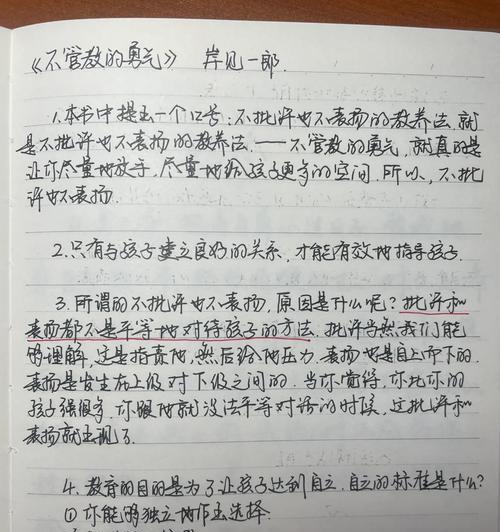 《不管教的勇气》 岸见一郎.
1.本书中提出一个口号:不批评也不表扬的教养法.就
是不批评也不表扬的教养法.——不管教的勇气,就真的是
让你尽量地放手,尽量地给孩子更多的空间.所以,不批
评也不表扬.
2.只有与孩子建立良好的关系,才能有效地指导孩子.
3.所谓的不批评也不表扬,原因是什么呢?批评和
表扬都不是平等地对待孩子的方法.批评当然我们能
够理解,这是指责他,然后给他压力.表扬也是自上而下的.
表扬是发生在上级对下级之间的.当你觉得,你比你的
孩子强很多,你跟他就没法平等对话的时候,这批评和
表扬就出现了.
4.教育的目的是为了让孩子达到自立.自立的标准是什么?
①你能够独立地作出选择.